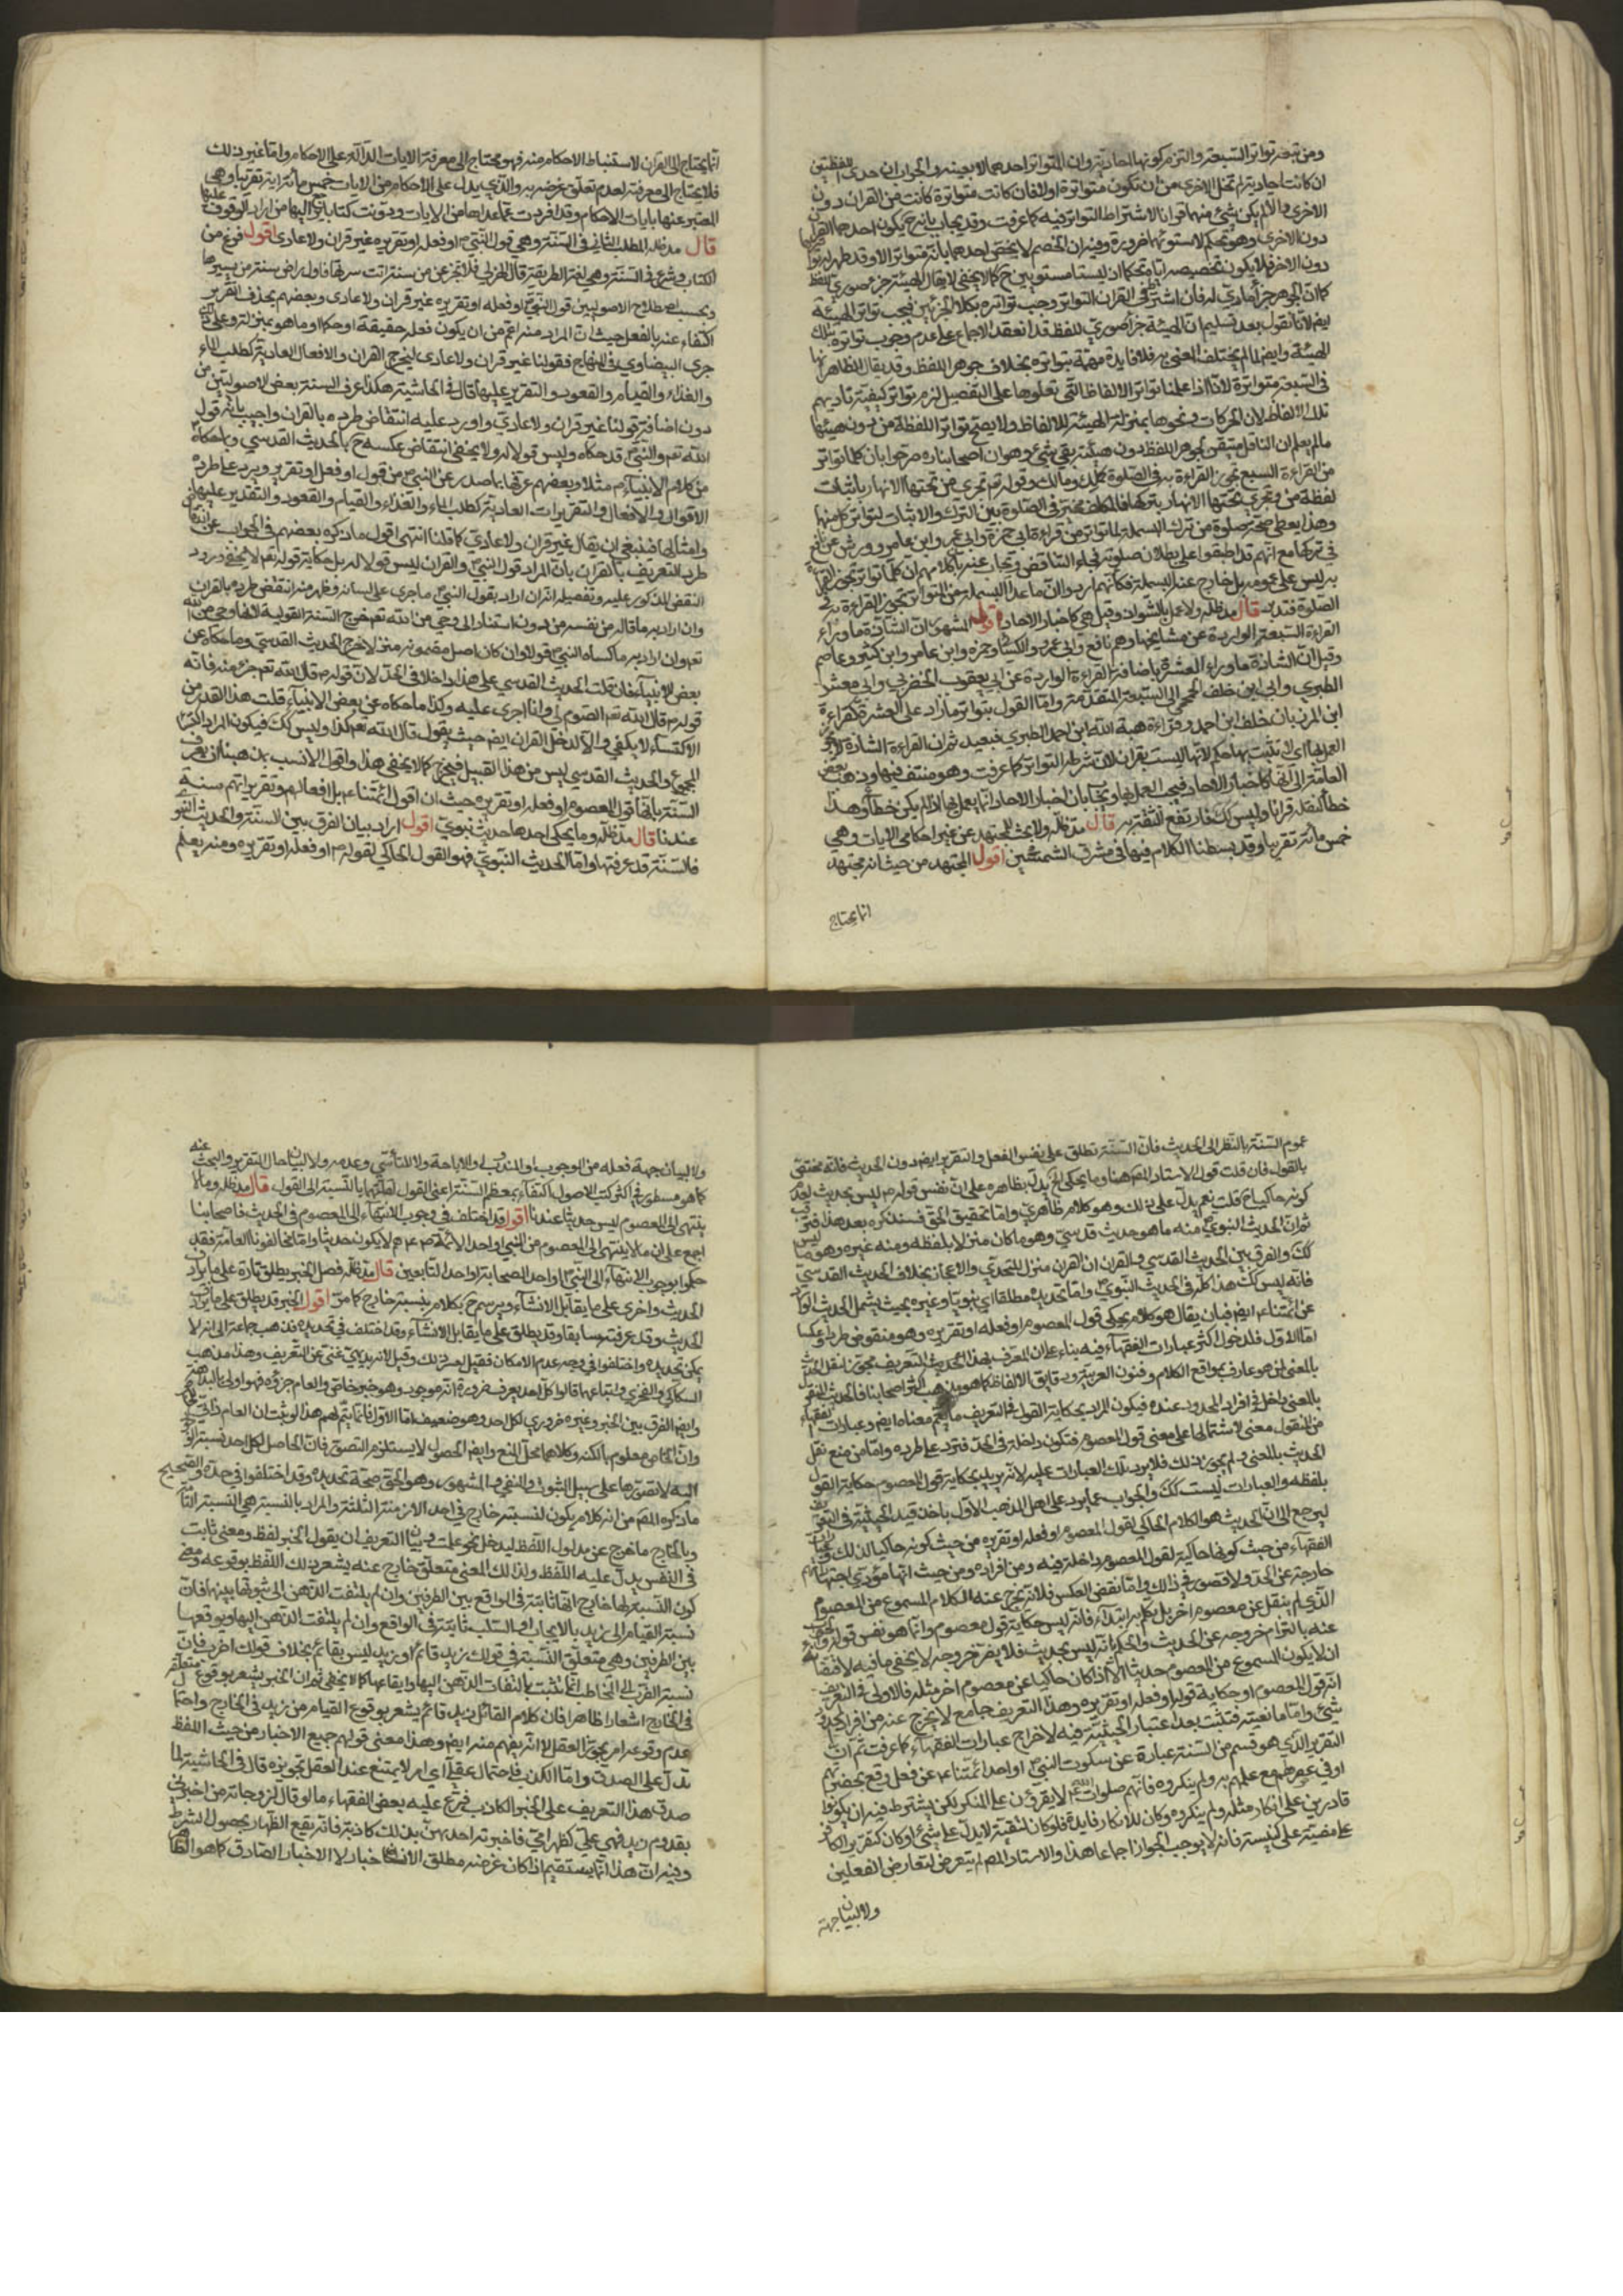 ومن تبعه تواتر السبعة والتزم كونها احادية وان المتواتر احدهما لا بعينه والجواب ان احدى اللفظتين
ان كانت احادية لم تخل الاخرى من ان تكون متواترة اولا فان كانت متواترة كانت من القران دون
الاخرى والا لم يكن شئ منهما قرانا لاشتراط التواتر فيه كما عرفت وقد يجاب بانه ح يكون احدهما القران
دون الاخرى وهو تحكم لاستوائهما ضرورة وفيه ان الخصم لا يخفى احدهما بانه متواتر الا وقد ظهر له
دون الاخر فلا يكون تخصيصه اياه تحكما ان ليستا مستويين ح كما لا يخفى لا يقال الهيئة جزء صوري للفظ
كما ان الجوهر جزء مادي له فان اشترط في القران التواتر وجب تواتره بكلا الجزئين فيجب تواتر الهيئة
ايضا لانا نقول بعد تسليم ان الهيئة جزء صوري للفظ قد انعقد الاجماع على عدم وجوب تواتر تلك
الهيئة وايضا لما لم يختلف المعنى به فلا فايدة مهمة بتواتره بخلاف جوهر اللفظ وقد يقال الظاهر انها
في السبعة متواترة لانا اذا علمنا تواتر الالفاظ التي تعلوها على التفصيل لزم تواتر كيفية تاديتهم
تلك الالفاظ لان الحركات ونحوها بمنزلة الهيئة للالفاظ ولا يصح تواتر اللفظة من دون هيئتها
ما لم يعلم ان الناقل متيقن لجوهر اللفظ دون هيئته بقي شئ وهو ان اصحابنا ره صرحوا بان كلما تواتر
من القراءة السبع تجوز القراءة به في الصلوة كملك ومالك وقوله تع تجري من تحتها الانهار باثبات
لفظة من وتجري تحتها الانهار بتركها فالمكلف مخير في الصلوة بين الترك والاثبات لتواتر كل منهما
وهذا يعطي صحة صلوة من ترك البسملة لما تواتر من قراءة ابي حمزة وابي عمرو وابن عامر وورش عن نافع
في تركها مع انهم قد اطبقوا على بطلان صلوته فجاء التناقض ويجاب عنه بان كلامهم ان كلما تواتر تجوز القراءة
به ليس على عمومه بل خارج عنه البسملة فكانهم ارادوا ان ما عدا البسملة من المتواتر تجوز القراءة به في
الصلوة فتدبر قال مد ظله ولا عمل بالشواذ وقيل هي كاخبار الاحاد اقول المشهور ان الشاذة ما وراء
القراءة السبعة الواردة عن مشايخها وهم نافع وابي عمرو والكسائي وحمزه وابن عامر وابن كثير وعاصم
وقيل ان الشاذة ما وراء العشرة باضافة القراءة الواردة عن ابي يعقوب الحضرمي وابي معشر
الطبري وابي ابن خلف الجمحي الى السبعة المتقدمة واما القول بتواتر ما زاد على العشرة كقراءة
ابن المرزبان خلف ابن احمد وقراءة هبة الله ابن احمد الطبري فبعيد ثم ان القراءة الشاذة لا يجوز
العمل بها اي لا تثبت بها حكم لانها ليست بقران لان شرطه التواتر كما عرفت وهو منتف فيها وذهب بعض
العامة الى انها كاخبار الاحاد فيجب العمل بها ويجاب بان اخبار الاحاد انما يعمل بها اذا لم يكن خطأ وهذا
خطأ لنقله قرانا وليس كك فارتفع الثقة به قال مد ظله ولا بحث للمجتهد عن غير احكامي الايات وهي
خمس مائة تقريبا وقد بسطنا الكلام فيها في مشرق الشمسين اقول المجتهد من حيث انه مجتهد
انما يحتاج
انما يحتاج الى القران لاستنباط الاحكام منه فهو محتاج الى معرفة الايات الدالة على الاحكام واما غير ذلك
فلا يحتاج الى معرفته لعدم تعلق غرضه به والذي يدل على الاحكام من الايات خمس مائة اية تقريبا وهي
المعبر عنها بايات الاحكام وقد افردت عما عداها من الايات ودونت كتابا يرجع اليها من اراد الوقوف عليها
قال مد ظله المطلب الثاني في السنة وهي قول النبي ص او فعله او تقريره غير قران ولا عادي اقول فرغ من
الكتاب وشرع في السنة وهي لغة الطريقة قال الهذلي فلا تجزعن من سنة انت سرتها فاول راض سنة من يسيرها
وبحسب اصطلاح الاصوليين قول النبي ص او فعله او تقريره غير قران ولا عادي وبعضهم يحذف التقرير
اكتفاء عنه بالفعل حيث ان المراد منه اعم من ان يكون فعله حقيقة او حكما وما هو بمنزلته وعلى ذلك
جرى البيضاوي في المنهاج فقولنا غير قران ولا عادي ليخرج القران والافعال العادية كطلب الماء
والغذاء والقيام والقعود والتقرير عليها قال في الحاشية هكذا عرف السنة بعض الاصوليين من
دون اضافة قولنا غير قران ولا عادي واورد عليه انتقاض طرده بالقران واجيب بانه قول
الله تع والنبي ص قد حكاه وليس قولا له ولا يخفى انتقاض عكسه ح بالحديث القدسي وبما حكاه ص
من كلام الانبياء ع م مثلا وبعضهم عرفها بما صدر عن النبي ص من قول او فعل او تقرير ويرد على طرده
الاقوال والافعال والتقريرات العادية كطلب الماء والغذاء والقيام والقعود والتقدير عليها
وامثالها فينبغي ان يقال غير قران ولا عادي كما قلنا انتهى اقول ما ذكره بعضهم في الجواب عن
طرد التعريف بالقران بان المراد قول النبي ص والقران ليس قولا له بل حكاية قوله تع لا يخفى ورود
النقض المذكور عليه وتفصيله انه ان اراد بقول النبي ص ما جرى على لسانه وظهر منه انتقض طرده بالقران
وان اراد به ما قاله من نفسه من دون استناد الى وحي من الله تع خرج السنة القولية لانها وحي من الله
تع وان اراد به ما كساه النبي ص قولا وان كان اصل مضمونه منزلا خرج الحديث القدسي وما حكاه عن
بعض الانبياء فان قلت الحديث القدسي على هذا داخلا في الحد لان قوله ص قال الله تع جزء منه فانه
قوله ص قال الله تع الصوم لي وانا اجزى عليه وكذا ما حكاه عن بعض الانبياء قلت هذا القدر من
الاكتساء لا يكفي والا لدخل القران ايضا حيث يقول قال الله تع كذا وليس كك فيكون المراد
المجموع والحديث القدسي ليس من هذا القبيل فيخرج كما لا يخفى هذا واقول الانسب بمذهبنا ان يعرف
السنة بانها قول المعصوم او فعله او تقريره حيث ان اقول ائمتناء بل افعالهم وتقريراتهم سنة
عندنا قال مد ظله وما يحكي احدها حديث نبوي اقول اراد بيان الفرق بين السنة والحديث النبوي
فالسنة قد عرفتها واما الحديث النبوي فهو القول الحاكي لقوله ص او فعله او تقريره ومنه يعلم
عموم السنة بالنظر الى الحديث فان السنة تطلق على نفس الفعل والتقرير ايضا دون الحديث فانه مختص
بالقول فان قلت قول الاستاد المص هنا وما يحكي الخ يدل بظاهره على ان نفس قوله ص ليس بحديث لعدم
كونه حاكيا ح قلت نعم يدل على ذلك وهو كلام ظاهري واما تحقيق الحق فسنذكره بعد هذا فترقب
ثم ان الحديث النبوي منه ما هو حديث قدسي وهو ما كان منزلا بلفظه ومنه غيره وهو ما ليس
كك والفرق بين الحديث القدسي والقران ان القران منزل للتحدي والاعجاز بخلاف الحديث القدسي
فانه ليس كك هذا كله في الحديث النبوي واما تحديده مطلقا اي نبويا وغيره بحيث يشمل الحديث الوارد
عن ائمتناء ايضا فبان يقال هو كلام يحكي قول المعصوم او فعله او تقريره وهو منقوض طردا وعكسا
اما الاول فلدخول اكثر عبارات الفقهاء فيه بناء على ان المعرف بهذا الحديث التعريف مجوز لنقل الحديث
بالمعنى لمن هو عارف بمواقع الكلام وفنون العربية ودقايق الالفاظ كما هو مذهب اكثر اصحابنا فالحديث المنقول
بالمعنى داخل في افراد المحدود عنده فيكون المراد بحكاية القول في التعريف ما يعم معناه ايضا وعبارات الفقهاء
من المنقول معنى لاشتمالها على معنى قول المعصوم فتكون داخلة في الحد فترد على طرده واما من منع نقل
الحديث بالمعنى ولم يجوز ذلك فلا يرد تلك العبارات عليه لانه يريد بحكاية قول المعصوم حكاية القول
بلفظه والعبارات ليست كك والجواب عما يرد على اهل المذهب الاول باخذ قيد الحيثية في التعريف
ليرجع الى ان الحديث هو الكلام الحاكي لقول المعصوم او فعله او تقريره من حيث كونه حاكيا لذلك
الفقهاء من حيث كونها حاكية لقول المعصوم داخلة فيه ومن افراده ومن حيث انها مؤدى اجتهادهم
خارجة عن الحد ولا قصور في ذلك واما نقض العكس فلانه يخرج عنه الكلام المسموع من المعصوم
الذي لم ينقل عن معصوم اخر بل تكلم به ابتداء فانه ليس حكاية قول معصوم وانما هو نفس قوله
عنه بالتزام خروجه عن الحديث والحكم بانه ليس بحديث فلا يضر خروجه لا يخفى ما فيه لاقتضائه
ان لا يكون المسموع من المعصوم حديثا الا اذا كان حاكيا عن معصوم اخر مثله فالاولى في التعريف
انه قول المعصوم او حكاية قوله او فعله او تقريره وهذا التعريف جامع لا يخرج عنه من افراد المحدود
شئ واما مانعيته فتثبت بعد اعتبار الحيثية فيه لاخراج عبارات الفقهاء كما عرفت ثم ان
التقرير الذي هو قسم من السنة عبارة عن سكوت النبي ص او احد ائمتناء ع م عن فعل وقع بحضرتهم
او في عصرهم مع علمهم به ولم ينكروه فانهم صلوات الله عليهم لا يقرون على المنكر لكن يشترط فيه ان يكونوا
قادرين على انكار مثله ولم ينكروه وكان للانكار فايدة فلو كان لتقية لا يدل على شئ او كان كتقرير الكافر
على مضيه على كنيسة فانه لا يوجب الجواز اجماعا هذا والاستاد المص لم يتعرض لتعارض الفعلين
ولا لبيان جهة
ولا لبيان جهة فعله من الوجوب او الندب والاباحة ولا للتأسي وعدمه ولا لبيان حال التقرير والبحث عنه
كما هو مسطور في اكثر كتب الاصول اكتفاء بمعظم السنة اعني القول لقلتها بالنسبة الى القول قال مد ظله وما لا
ينتهي الى المعصوم ليس حديثا عندنا اقول قد اختلف في وجوب الانتهاء الى المعصوم في الحديث فاصحابنا
اجمع على ان ما لا ينتهي الى المعصوم من النبي او احد الائمة ص ع م لا يكون حديثا واما مخالفونا العامة فقد
حكموا بوجوب الانتهاء الى النبي ص او احد الصحابة او احد التابعين قال مد ظله فصل الخبر يطلق تارة على ما يرادف
الحديث واخرى على ما يقابل الانشاء ويرسم ح بكلام لنسبته خارج كما مر اقول الخبر قد يطلق على ما يرادف
الحديث وقد عرفته سابقا وقد يطلق على ما يقابل الانشاء وقد اختلف في تحديده فذهب جماعة الى انه لا
يمكن تحديده واختلفوا في وجه عدم الامكان فقيل لعسر ذلك وقيل لانه بديهي غني عن التعريف وهذا مذهب
السكاكي والفخري واتباعهما قالوا كل احد يعرف ضرورة انه موجود وهو خبر خاص والعام جزؤه فهو اولى بالبداهة
وايضا الفرق بين الخبر وغيره ضروري لكل احد وهو ضعيف اما الاول فانما يتم لهم هذا لو ثبت ان العام ذاتي
وان الخاص معلوم بالكنه وكلاهما محل المنع وايضا الحصول لا يستلزم التصور فان الحاصل لكل احد نسبة الوجود
اليه لا تصورها على سبيل الثبوت والنفي والمشهور وهو الحق صحة تحديده وقد اختلفوا في حده والصحيح
ما ذكره المص من انه كلام يكون لنسبته خارج في احد الازمنة الثلثة والمراد بالنسبة هي النسبة التامة
وبالخارج ما خرج عن مدلول اللفظ ليدخل نحو علمت وبيان التعريف ان يقول الخبر لفظ ومعنى ثابت
في النفس يدل عليه اللفظ ولذلك المعنى متعلق خارج عنه يشعر ذلك اللفظ بوقوعه ومعنى
كون النسبة لها خارج انها ثابتة في الواقع بين الطرفين وان لم يلتفت الذهن الى ثبوتها بينهما فان
نسبة القيام الى زيد بالايجاب او السلب ثابتة في الواقع وان لم يلتفت الذهن اليها ويوقعها
بين الطرفين وهي متعلق النسبة في قولك زيد قائم او زيد ليس بقائم بخلاف قولك اضرب فان
نسبة الضرب الى المخاطب انما تثبت بالتفات الذهن اليها وايقاعها كما لا يخفى ثم ان الخبر يشعر بوقوع متعلقه
في الخارج اشعارا ظاهرا فان كلام القائل زيد قائم يشعر بوقوع القيام من زيد في الخارج واحتمال
عدم وقوعه امر يجوزه العقل لا انه يفهم منه ايضا وهذا معنى قولهم جميع الاخبار من حيث اللفظ
تدل على الصدق واما الكذب فاحتمال عقلي اي امر لا يمتنع عند العقل تجويزه قال في الحاشية لما
صدق هذا التعريف على الخبر الكاذب فيتجه عليه بعض الفقهاء ما لو قال لزوجاته من اخبرني
بقدوم زيد فهي علي كظهر امي فاخبرته احديهن بذلك كاذبة فانه يقع الظهار لحصول الشرط
وفيه ان هذا انما يستقيم اذا كان غرضه مطلق الاخبار لا الاخبار الصادق كما هو الظاهر